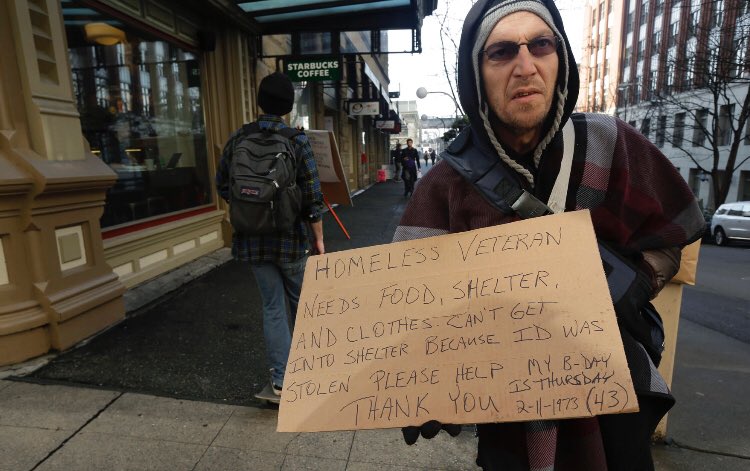 STARBUCKS
COFFEE
JANSPORT
HOMELESS VETERAN
NEEDS FOOD, SHELTER,
AND CLOTHES. CAN'T GET
INTO SHELTER BECAUSE ID WAS
STOLEN PLEASE HELP MY B-DAY
IS THURSDAY
THANK YOU 2-11-1973 (43)